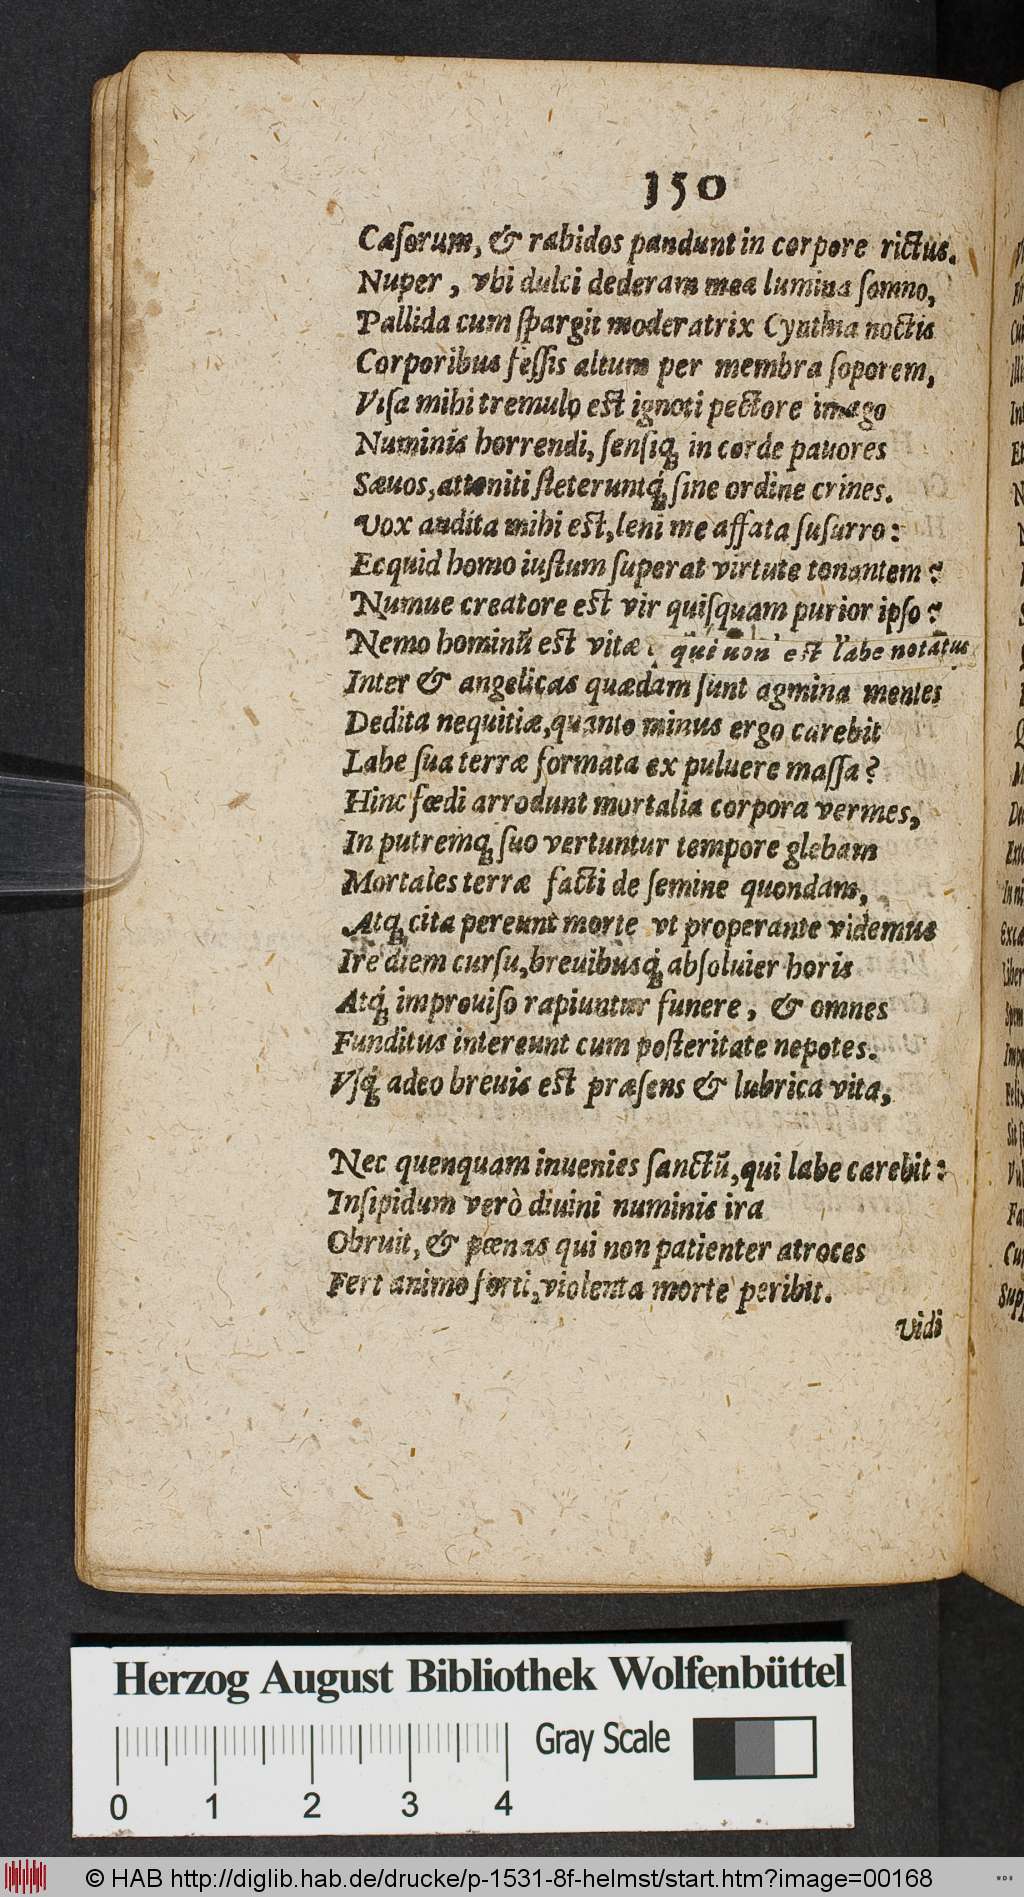 150
Cæſorum, & rabidos pandunt in corpore rictus.
Nuper, vbi dulci dederam mea lumina ſomno,
Pallida cum ſpargit moderatrix Cynthia noctis
Corporibus feſſis altum per membra ſoporem,
Viſa mihi tremulo est ignoti pectore imago
Numinis horrendi, ſenſiq́ꝫ in corde pauores
Sæuos, attoniti ſteteruntq́ꝫ ſine ordine crines.
Vox audita mihi est, leni me affata ſuſurro:
Ecquid homo iuſtum ſuperat virtute tonantem?
Numue creatore est vir quiſquam purior ipſo?
Nemo hominũ est vitæ qui non est labe notatus
Inter & angelicas quædam ſunt agmina mentes
Dedita nequitiæ, quanto minus ergo carebit
Labe ſua terræ formata ex puluere maſſa?
Hinc fœdi arrodunt mortalia corpora vermes,
In putremq́ꝫ ſuo vertuntur tempore glebam
Mortales terræ facti de ſemine quondam,
Atq́ꝫ cita pereunt morte vt properante videmus
Ire diem curſu, breuibusq́ꝫ abſoluier horis
Atq́ꝫ improuiſo rapiuntur funere, & omnes
Funditus intereunt cum poſteritate nepotes.
Vſq́ꝫ adeo breuis est præſens & lubrica vita,
Nec quenquam inuenies ſanctũ, qui labe carebit:
Inſipidum verò diuini numinis ira
Obruit, & pœnas qui non patienter atroces
Fert animo forti, violenta morte peribit.
Vidi
Herzog August Bibliothek Wolfenbüttel
Gray Scale
0 1 2 3 4
© HAB http://diglib.hab.de/drucke/p-1531-8f-helmst/start.htm?image=00168